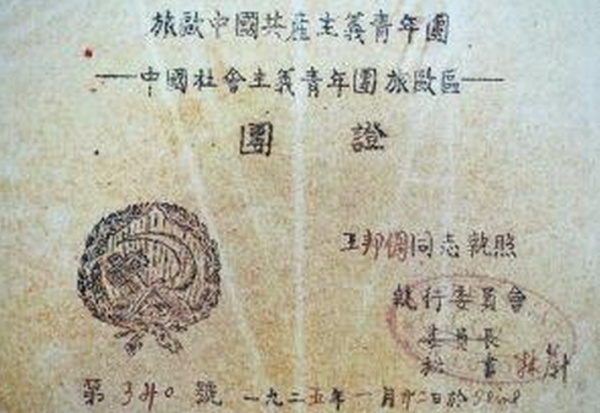 旅歐中國共產主義青年團
——中國社會主義青年團旅歐區——
團 證
王邦倜同志執照
執行委員會
委員長
秘 書 林蔚
第 340 號 一九二五年一月廿二日於